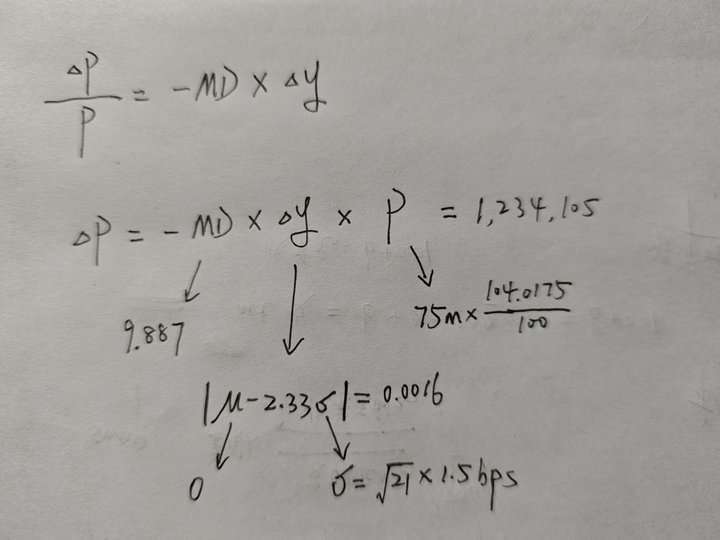 ΔP/P = -MD × Δy
ΔP = -MD × Δy × P = 1,234,105
9.887
75m × 104.0175/100
|μ-2.33σ| = 0.0016
0
σ = √21 × 1.5bps